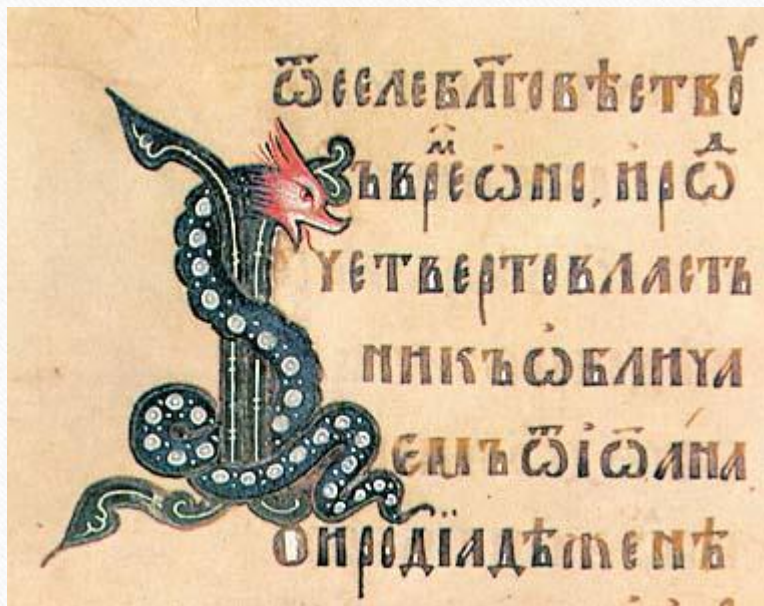 ѿселеблг҃овѣствоу
ъврⷨеѡно, иръѡⷣ
четвертовласть
никъѡблича
емъѿіѡана
оиродїадѣженѣ